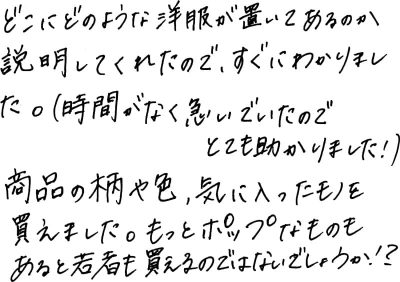 どこにどのような洋服が置いてあるのか
説明してくれたので、すぐにわかりまし
た。(時間がなく急いでいたので
とても助かりました!)
商品の柄や色、気に入ったモノを
買えました。もっとポップなものも
あると若者も買えるのではないでしょうか!?